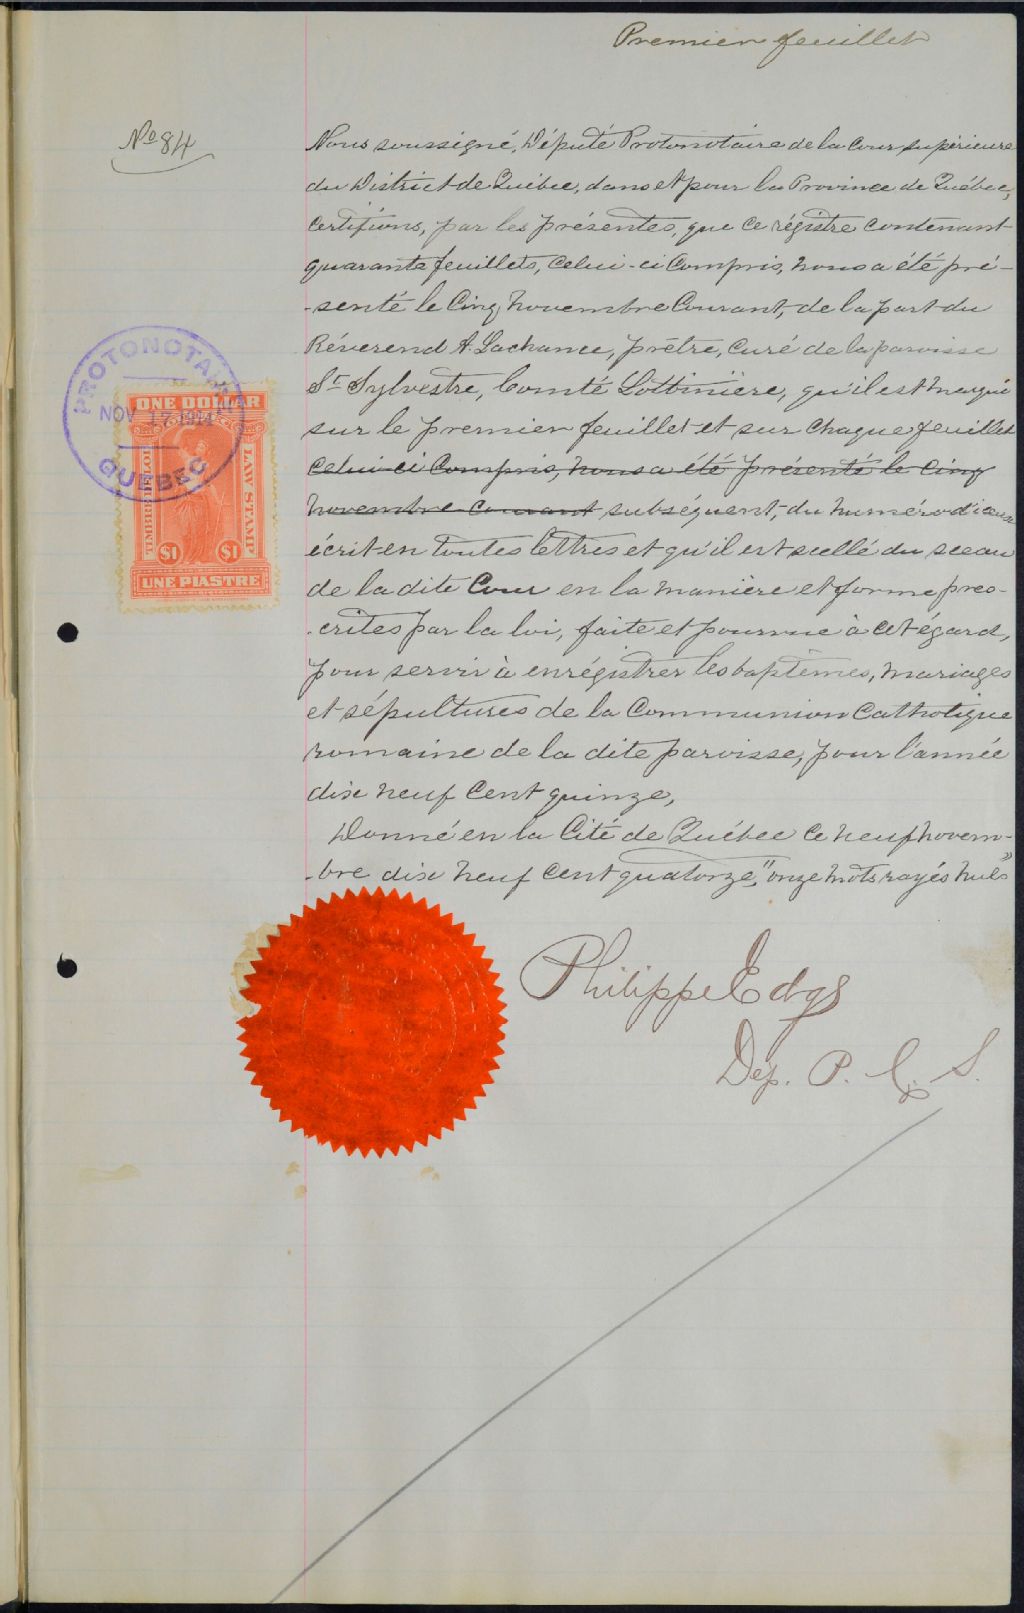 Premier feuillet
No 84
Nous soussigné, Député Protonotaire de la Cour supérieure
du District de Québec, dans et pour la Province de Québec,
certifions, par les présentes, que ce régistre contenant
quarante feuillets, celui-ci compris, nous a été pré-
-senté le cinq novembre courant, de la part du
Révérend A. Lachance, prêtre, curé de la paroisse
St Sylvestre, Comté Lotbinière, qu'il est marqué
sur le premier feuillet et sur chaque feuillet
celui-ci compris, nous a été présenté le cinq
novembre courant subséquent, du numéro d'iceux
écrit en toutes lettres et qu'il est scellé du sceau
de la dite Cour en la manière et forme pres-
-crites par la loi, faite et pourvue à cet égard,
pour servir à enrégistrer les baptêmes, mariages
et sépultures de la Communion Catholique
romaine de la dite paroisse, pour l'année
dix neuf cent quinze,
Donné en la Cité de Québec ce neuf novem-
-bre dix neuf cent quatorze, "onze mots rayés nuls"
Dep. P. C. S.
PROTONOTAIRE
NOV 17 1914
QUEBEC
ONE DOLLAR
TIMBRE DE LOI
LAW STAMP
$1 $1
UNE PIASTRE